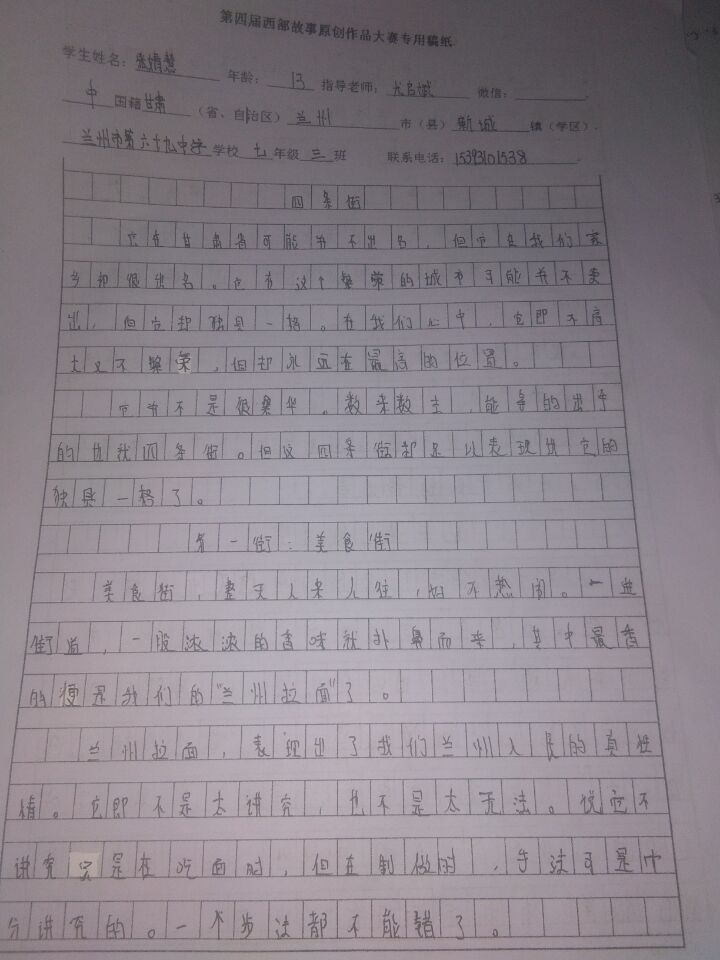 第四届西部故事原创作品大赛专用稿纸
学生姓名：张婧慧 年龄：13 指导老师：尤启斌 微信：
中 国籍 甘肃（省、自治区）兰州 市（县）新城 镇（学区）.
兰州市第六十九中学 学校 七 年级 三 班 联系电话：15393101538
四条街
它在甘肃省可能并不出名，但它在我们家
乡却很出名。它在这个繁荣的城市可能并不突
出，但它却独具一格。在我们心中，它即不高
大又不繁荣，但却永远在最高的位置。
它并不是很繁华。数来数去，能争的出乎
的也就四条街。但这四条街却足以表现出它的
独具一格了。
第一街：美食街
美食街，整天人来人往，好不热闹。一进
街道，一股浓浓的香味就扑鼻而来，其中最香
的便是我们的“兰州拉面”了。
兰州拉面，表现出了我们兰州人民的真性
情。它即不是太讲究，也不是太无法。说它不
讲究只是在吃面时，但在制做时，手法可是十
分讲究的。一个步法都不能错了。